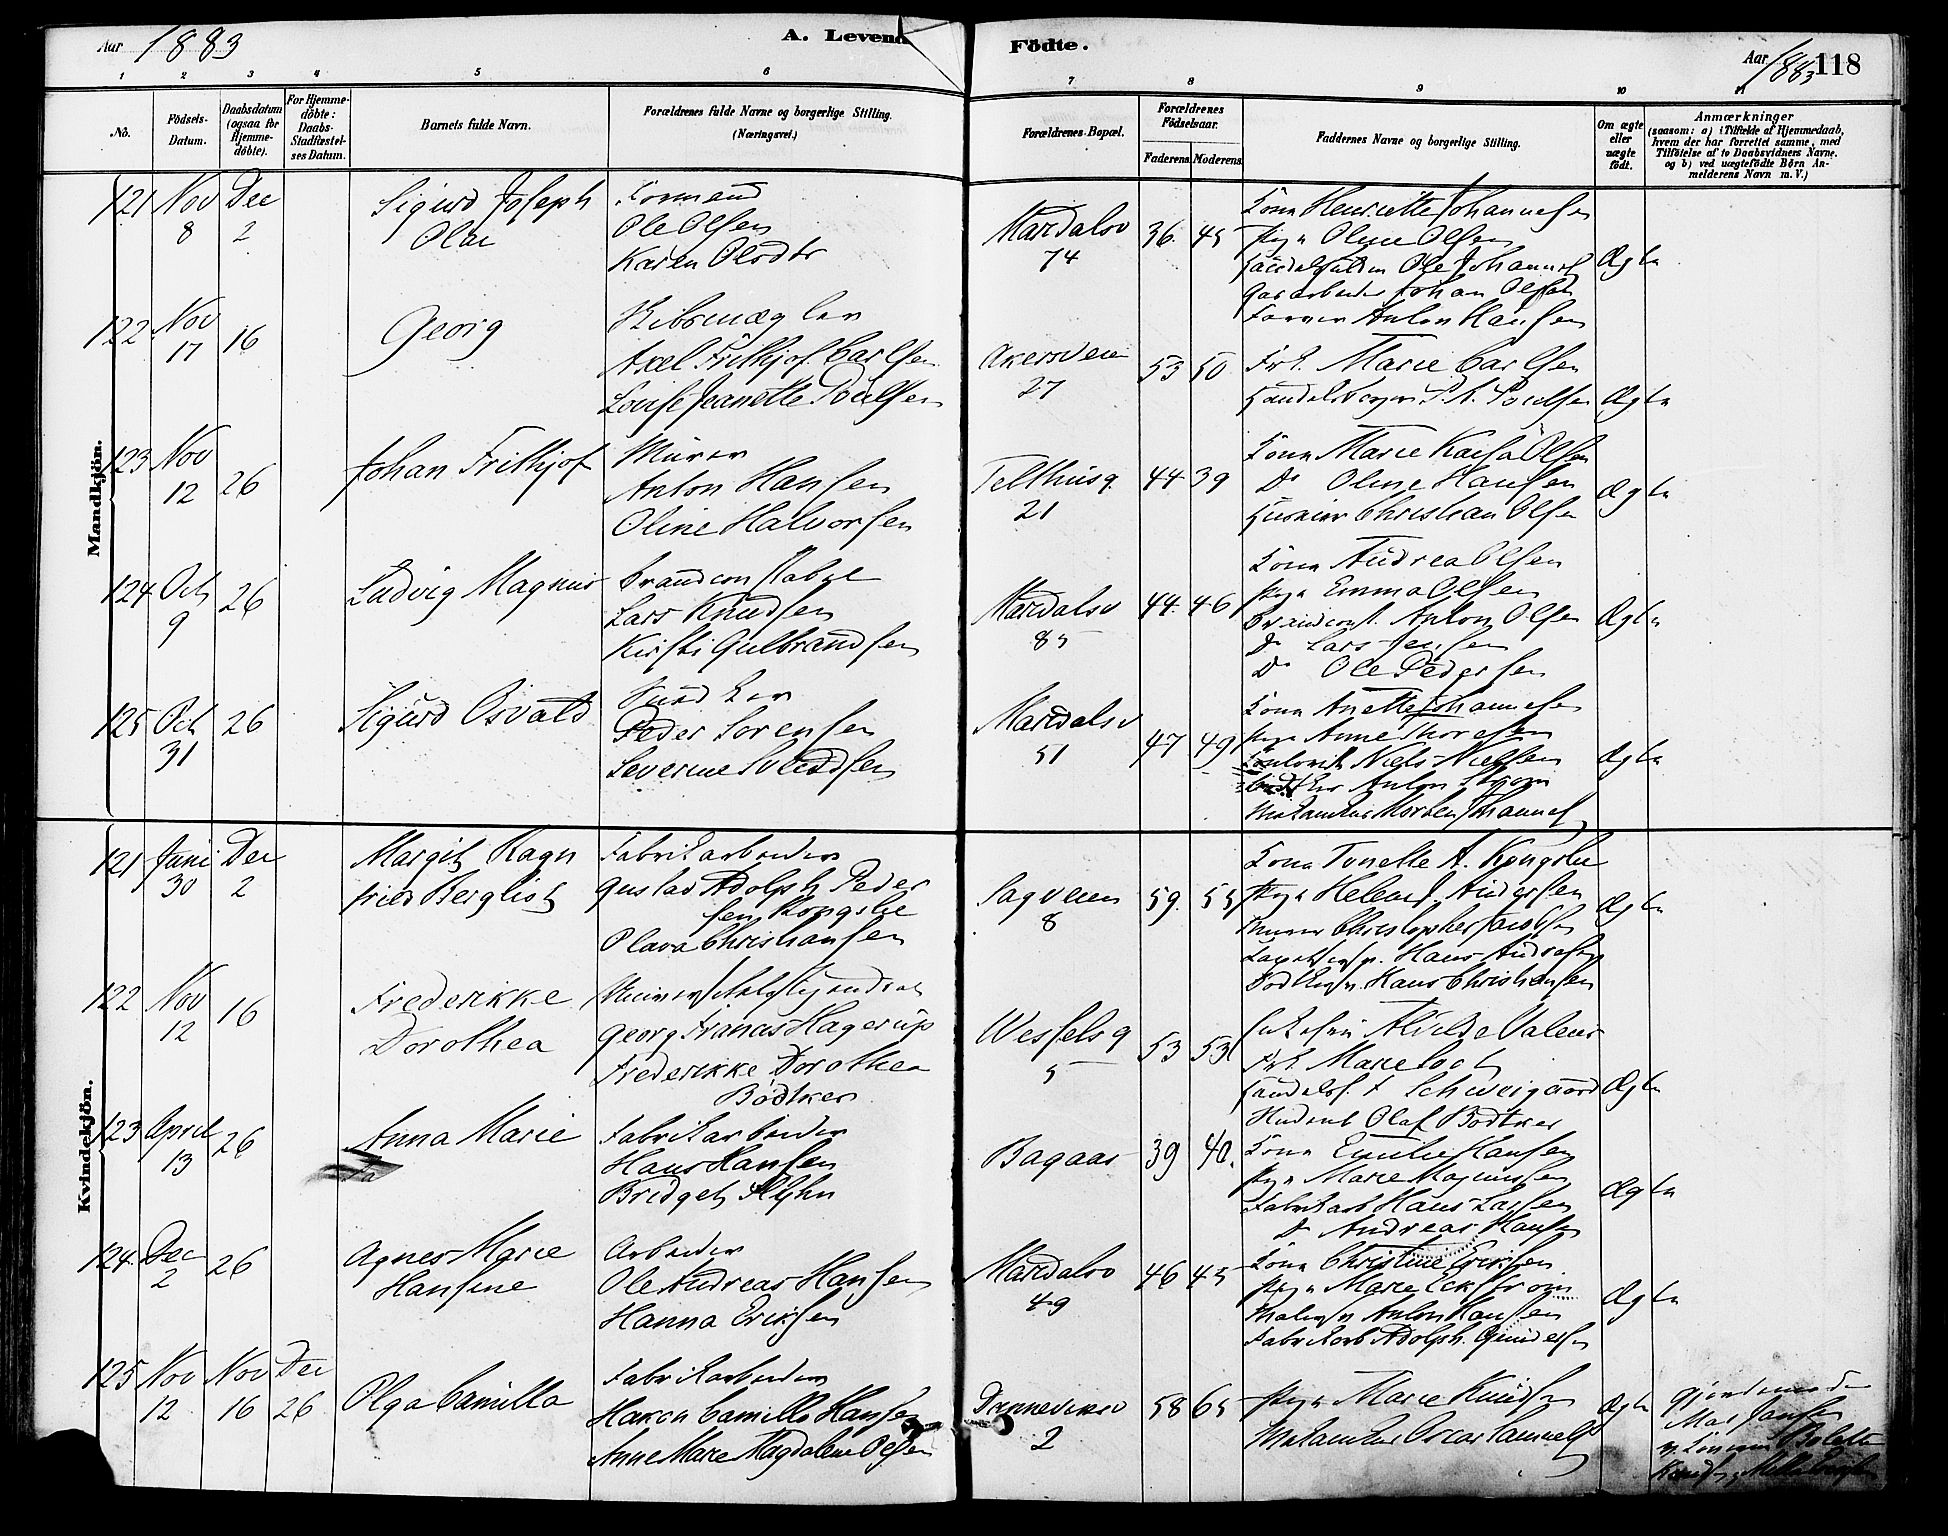 Aar 1883
A. Levend
Födte.
Aar 1883
118
1 2 3 4 5 6 7 8 9 10 11
No.
Födsels-Datum.
Daabsdatum (ogsaa for Hjemme-döbte).
For Hjemme-döbte: Daabs-Stadfæstel-ses Datum.
Barnets fulde Navn.
Forældrenes fulde Navne og borgerlige Stilling.
(Næringsvei.)
Forældrenes Bopæl.
Forældrenes Födselsaar.
Faderens. Moderens.
Faddernes Navne og borgerlige Stilling.
Om ægte eller uægte födt.
Anmærkninger
(saasom: a) i Tilfælde af Hjemmedaab,
hvem der har forrettet samme, med
Tilföielse af to Daabsvidners Navne.
og b) ved uægtefödte Börn An-
melderens Navn m. V.)
Mandkjön.
121 Nov 8 Dec 2
Sigurd Joseph
Olai
Formand
Ole Olsen
Karen Olsdtr
Mardalsv
74
36. 45
Kona Henriette Johannesen
Pige Oline Olsen
Ole Johannes
Gasarbeider Johan Olsen
Farver Anton Hansen
Ægte
122. Nov 17 16
Georg
Skibsmægler
Axel Frithjof Carlsen
Lovise Jeanette Poulsen
Akersveien
27
53 50
Frk. Marie Carlsen
Poulsen
Ægte
123 Nov 12 26
Johan Frithjof
Murer
Anton Hansen
Oline Halvorsen
Telthusg.
21
44 39
Kona Marie Kaisa Olsen
Do Oline Hansen
Christian Olsen
Ægte
124 Oct 9 26
Ludvig Magnus
Brandconstabel
Lars Knudsen
Kirsti Gulbrandsen
Mardalsv
85
44. 46
Kona Andrea Olsen
Pige Emma Olsen
Brandconst. Anton Olsen
Do Lars Jensen
Do Ole Pedersen
Ægte
125 Oct 31 26
Sigurd Osvald
Snedker
Peder Sorensen
Severine Svendsen
Mardalsv
51
47 49
Kona Anette Johannesen
Pige Anne Thoresen
Niels Nielsen
Anton Strøm
Morten Johannes
Ægte
Kvindekjön.
121 Juni 30 Dec 2
Margit Ragn
fried Bergliot
Fabrikarbeider
Gustav Adolph Peder
sen Kongslie
Olava Christiansen
Sagveien
8
59. 55
Kona Tonette A. Kongslie
Pige Helene J. Andersen
Murer Christopher Jacobsen
Hans Andresen
Hans Christiansen
Ægte
122 Nov 12 16
Frederikke
Dorothea
Georg Francis Hagerup
Frederikke Dorothea
Bødtker
Wesselsg
5
53 53
Frk Marie
Schweigaard
Student Olaf Bødtker
Ægte
123 April 13 26
Anna Marie
Fabrikarbeider
Hans Hansen
Bridget Flyhn
Bagaas
39 40.
Kona Emilie Hansen
Pige Marie Magnussen
Fabrikarb Hans Larsen
Do Andreas Hansen
Ægte
124. Dec 2 26
Agnes Marie
Hansine
Arbeider
Ole Andreas Hansen
Hanna Eriksen
Mardalsv
49
46 45
Kona Christine Eriksen
Pige Marie Eckstrøm
Malersv Anton Hansen
Fabrikarb Adolph. Gundersen
Ægte
125 Nov 12 Nov 16 Dec 26
Olga Camilla
Fabrikarbeider
Hakon Camillo Hansen
Anne Marie Magdalene Olsen
Dannevirksv
2
58 65
Pige Marie Knudsen
Oscar Samuels
Ægte
Gjordemoder